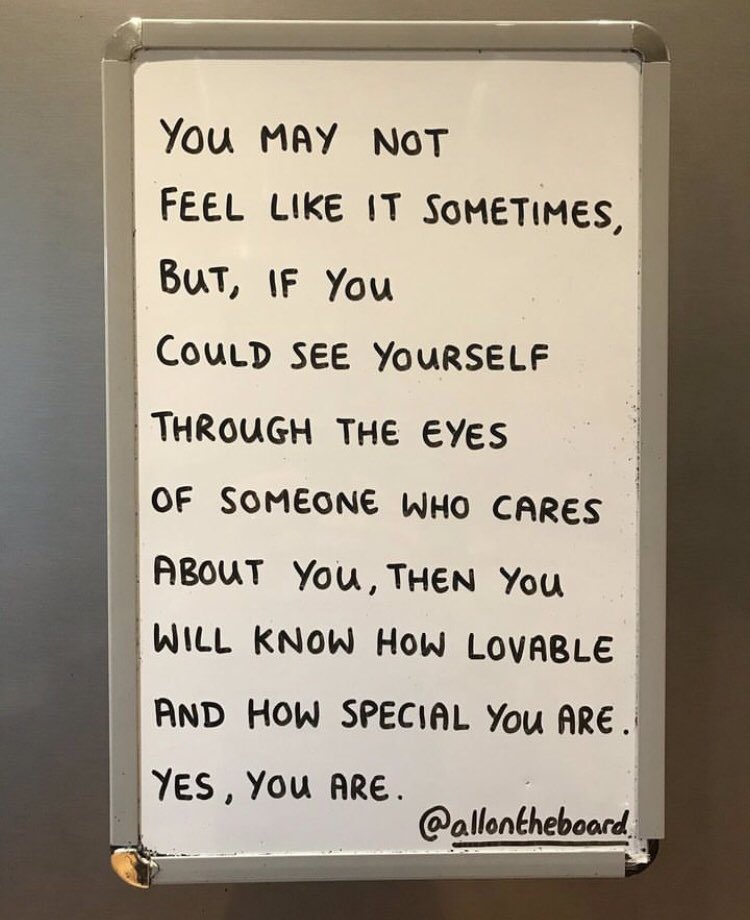 YOU MAY NOT
FEEL LIKE IT SOMETIMES,
BUT, IF YOU
COULD SEE YOURSELF
THROUGH THE EYES
OF SOMEONE WHO CARES
ABOUT YOU, THEN YOU
WILL KNOW HOW LOVABLE
AND HOW SPECIAL YOU ARE.
YES, YOU ARE.
@allontheboard